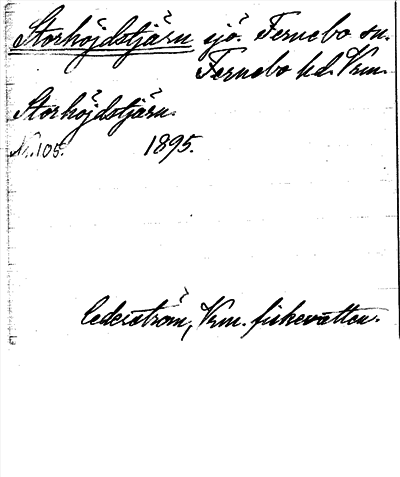 Storhöjdstjärn sjö. Fernebo sn.
Fernebo hd. Vrm.
Storhöjdstjärn.
N:105. 1895.
Cederström, Vrm. fiskevatten.